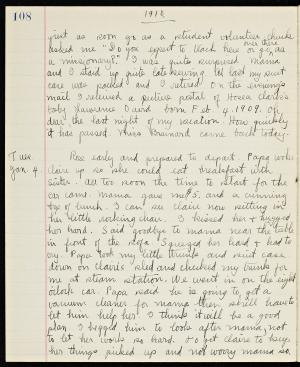 108
1912
just as soon go as a student volunteer. Aunt
asked me "Do you expect to teach here or go over there as
a missionary?" I was quite surprised. Mama
and I staid up quite late sewing. At last my suit
case was packed and I retired. On the evening's
mail I received a picture postal of Hosea Clark's
baby Lawrence David born Feb. 4, 1909. Oh,
dear the last night of my vacation. How quickly
it has passed. Miss Brainard came back today.
Tues
Jan. 4
Rose early and prepared to depart. Papa woke
Claire up so she could eat breakfast with
sister. All too soon the time to start for the
car came. Mama gave me $5. and a
of lunch. I can see Claire now sitting in
her little rocking chair. I kissed her & hugged
her hard. Said goodbye to mama near the table
in front of the sofa. Squeezed her hard & had to
cry. Papa took my little trunk and suit case
down on Claire's sled and checked my trunk for
me at steam station. We went in on the eight
o'clock car. Papa said he is going to get a
vacuum cleaner for mama then she'll have to
let him help her! I think it will be a good
plan. I begged him to look after mama, not
to let her work so hard. to get Claire to keep
her things picked up and not worry mama so.